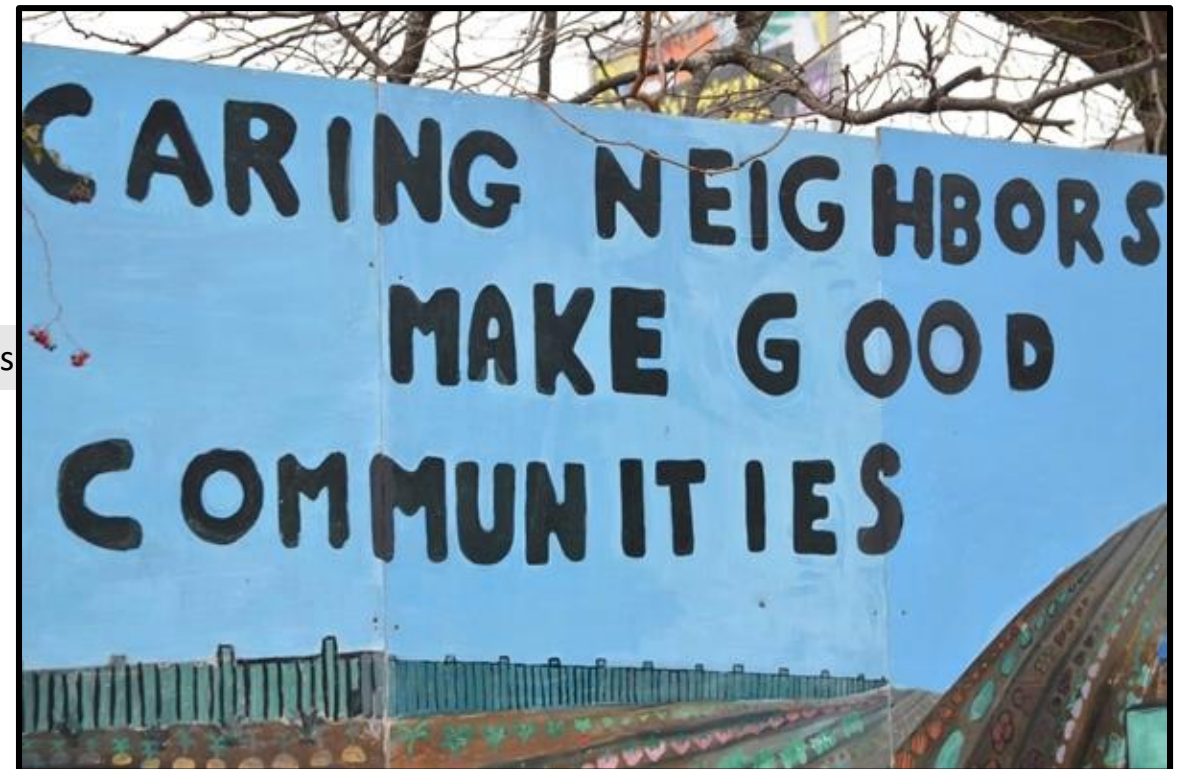 CARING NEIGHBORS
MAKE GOOD
COMMUNITIES
s